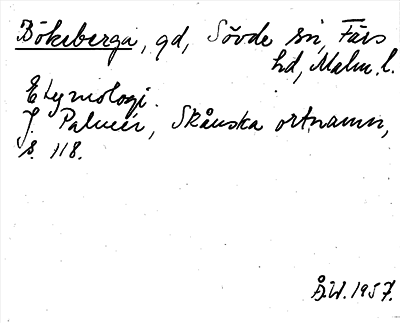 Bökeberga, gd, Sövde sn, Färs
hd, Malm. l.
Etymologi.
J. Palmér, Skånska ortnamn,
s. 118.
Å.W. 1957.